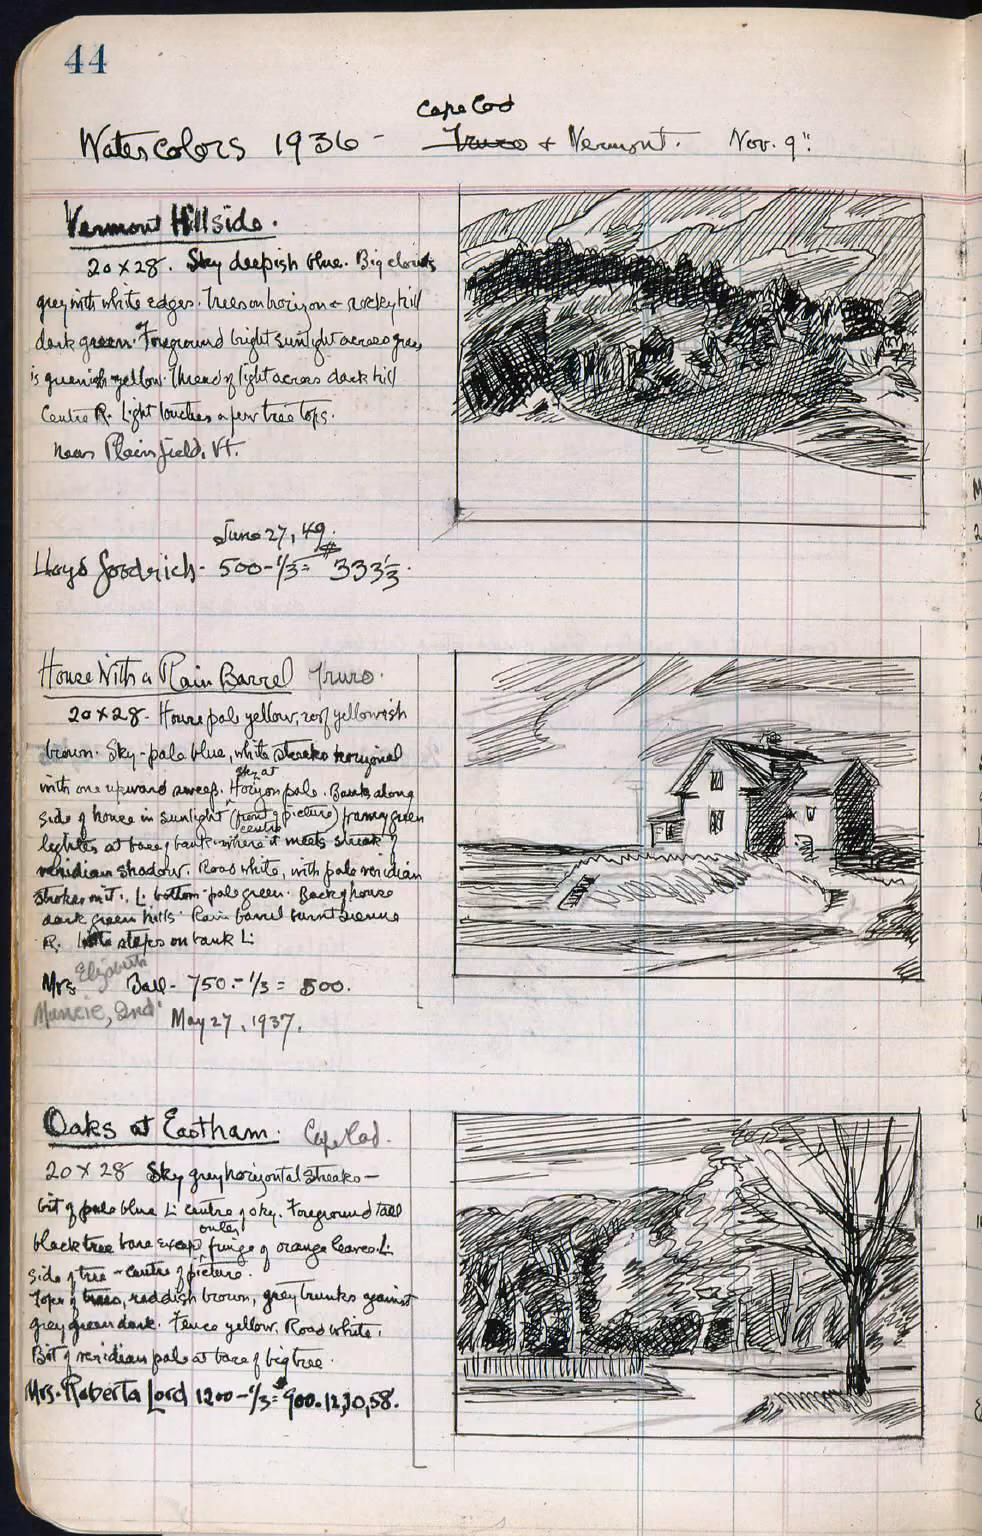 44
Cape Cod
Water Colors 1936 - Truro + Vermont. Nov. 9"
Vermont Hillside.
20 x 28. Sky deepish blue. Big clouds
grey with white edges. Trees on horizon + rocky hill
dark green. Foreground bright sunlight across grass,
is greenish yellow. Thread of light across dark hill
Centre R. Light touches a few tree tops.
near Plainfield, Vt.
June 27, 49.
Lloyd Goodrich - 500 - 1/3 = $333 1/3.
House With a Rain Barrel Truro.
20 x 28 - House pale yellow, roof yellowish
brown. Sky - pale blue, white streaks horizonal
with one upward sweep. Sky at Horizon pale. Bank along
side of house in sunlight (front of picture) green
lighter at base of bank - centre where it meets streak of
veridian shadow. Road white, with pale veridian
strokes on it, L. bottom - pale green. Back of house
dark green hills. Rain barrel burnt sienna
R. steps on bank L.
Mrs Elizabeth Ball - 750 - 1/3 = 500.
Muncie, Ind.
May 27, 1937.
Oaks at Eastham. Cape Cod.
20 x 28 Sky grey horizontal streaks -
bit of pale blue L. centre of sky. Foreground tall
black tree bare except outer fringe of orange leaves L.
side of tree - centre of picture.
Tops of trees, reddish brown, grey trunks against
grey green dark. Fence yellow. Road white.
Bit of veridian pale at base of big tree.
Mrs. Roberta Lord 1200 - 1/3 = $900. 12,30,58.